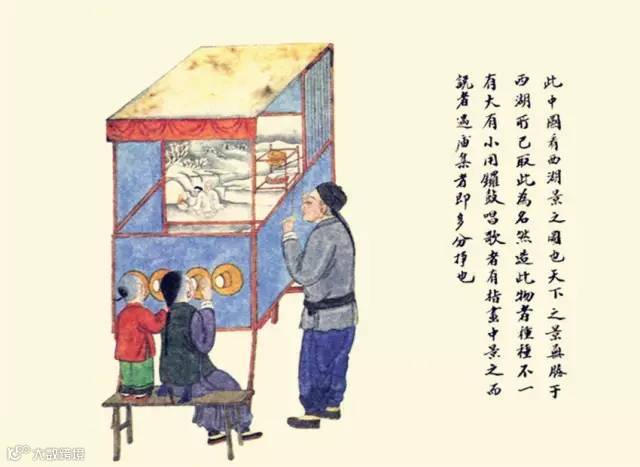 此中國看西湖景之圖也天下之景無勝于
西湖所已取此為名然造此物者種種不一
有大有小用鑼鼓唱歌者有指畫中景之而
說者遇庙集者即多分掙也
大数跨境